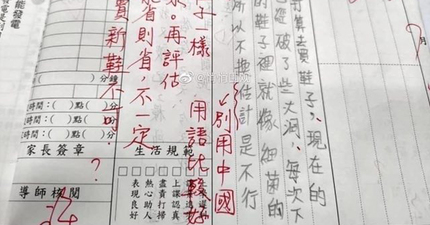 算去買鞋子，現在的
經破了些大洞，每次下
的鞋子裡就像細菌的
所以不換估計是不行
別用中國
用語比較好
子一樣
。再評估
能省則省，不一定
買新鞋不可？
能發電
)分鐘
時間：( )點(
時間：( )點(
家長簽章
導師核閱
生活規範
上課認真
盡責打掃
熱心助人
表現良好